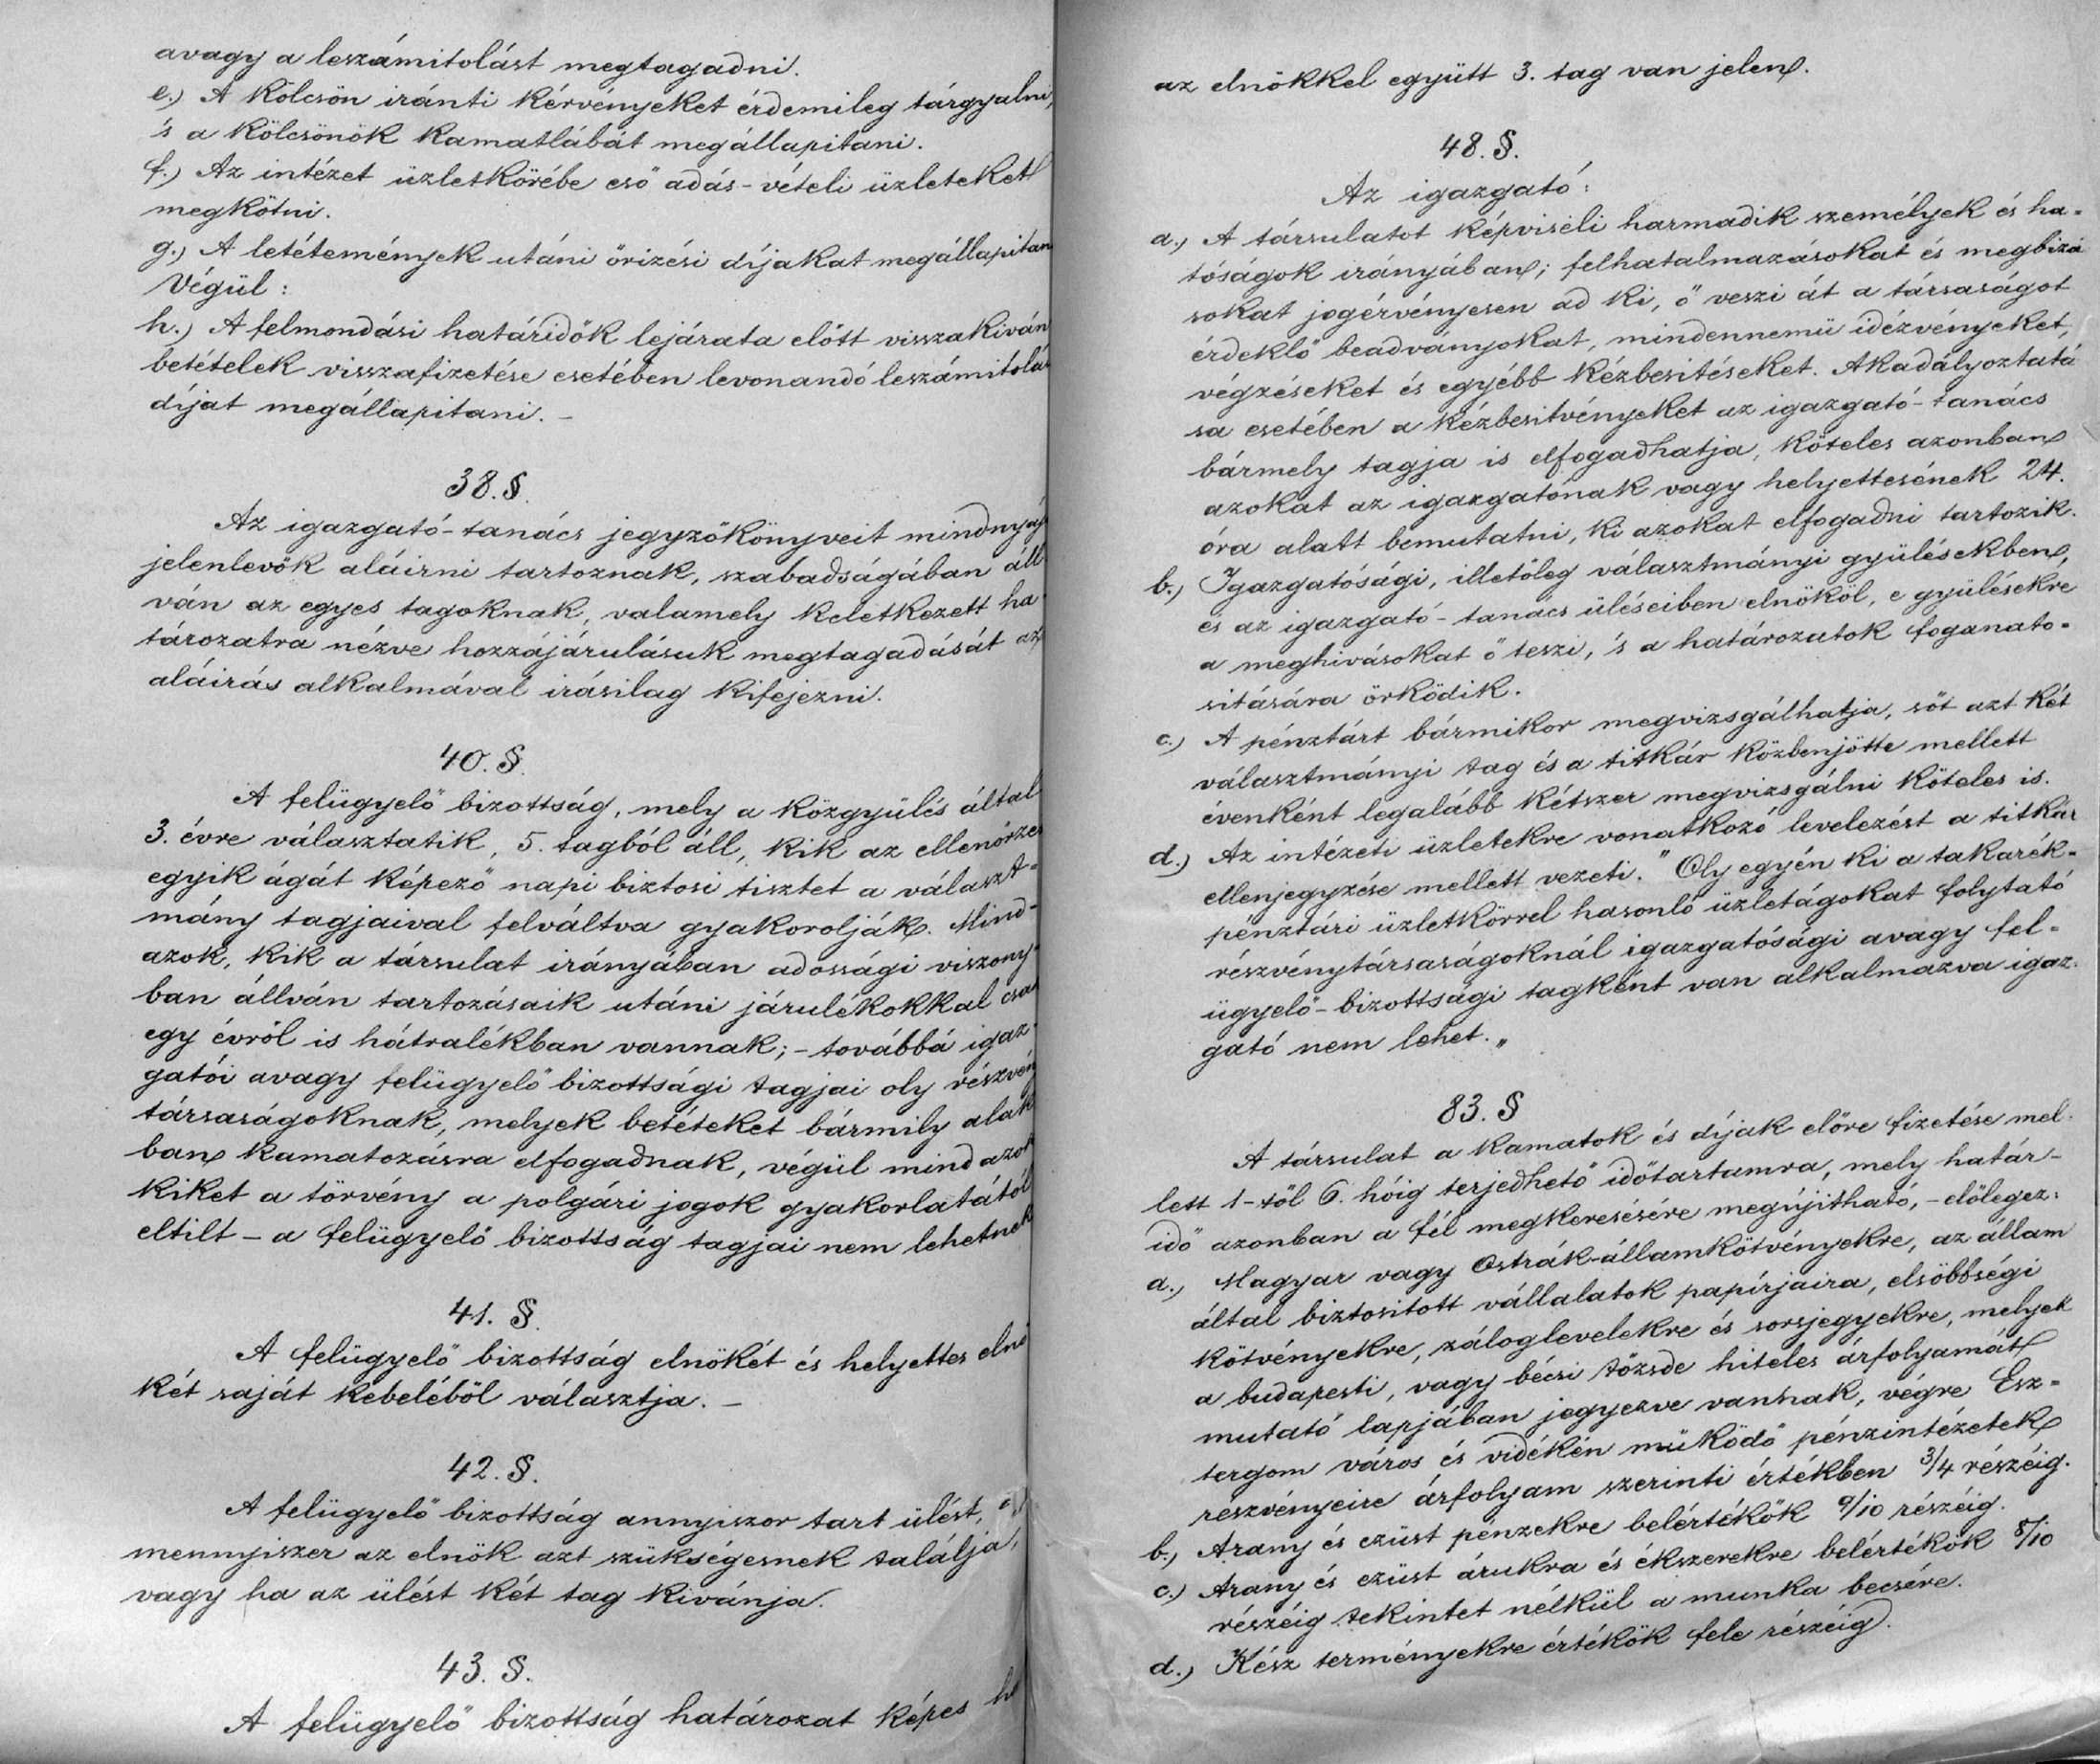 avagy a leszámitolást megtagadni.
e.) A kölcsön iránti kérvényeket érdemileg tárgyalni,
's a kölcsönök kamatlábát megállapitani.
f.) Az intézet üzletkörébe eső adás-vételi üzleteket
megkötni.
g.) A letétemények utáni őrizési díjakat megállapitan
Végül:
h.) A felmondási határidők lejárata előtt visszakiván
betételek visszafizetése esetében levonandó leszámitolá
díjat megállapitani. –
38. §.
Az igazgató-tanács jegyzőkönyveit mindnyáj
jelenlevők aláirni tartoznak, szabadságában áll
ván az egyes tagoknak, valamely keletkezett ha
tározatra nézve hozzájárulásuk megtagadását az
aláirás alkalmával irásilag kifejezni.
40. §.
A felügyelő bizottság, mely a közgyülés által
3. évre választatik, 5. tagból áll, kik az ellenőrzés
egyik ágát képező napi biztosi tisztet a választ-
mány tagjaival felváltva gyakorolják. Mind-
azok, kik a társulat irányában adossági viszony-
ban állván tartozásaik utáni járulékokkal csak
egy évről is hátralékban vannak; – továbbá igaz-
gatói avagy felügyelő bizottsági tagjai oly részvén
társaságoknak, melyek betéteket bármily alak
ban kamatozásra elfogadnak, végül mind azok
kiket a törvény a polgári jogok gyakorlatától
eltilt – a felügyelő bizottság tagjai nem lehetnek
41. §.
A felügyelő bizottság elnökét és helyettes elnö
két saját kebeléből választja. –
42. §.
A felügyelő bizottság annyiszor tart ülést,
mennyiszer az elnök azt szükségesnek találja,
vagy ha az ülést két tag kivánja.
43. §.
A felügyelő bizottság határozat képes h
az elnökkel együtt 3. tag van jelen.
48. §.
Az igazgató:
a.) A társulatot képviseli harmadik személyek és ha-
tóságok irányában; felhatalmazásokat és megbizá
sokat jogérvényesen ad ki, ő veszi át a társaságot
érdeklő beadványokat, mindennemü idézvényeket,
végzéseket és egyébb kézbesitéseket. Akadályoztatá
sa esetében a kézbesitvényeket az igazgató-tanács
bármely tagja is elfogadhatja, köteles azonban
azokat az igazgatónak vagy helyettesének 24.
óra alatt bemutatni, ki azokat elfogadni tartozik.
b.) Igazgatósági, illetőleg választmányi gyülésekben,
és az igazgató-tanács üléseiben elnököl, e gyülésekre
a meghivásokat ő teszi, 's a határozatok foganato-
sitására örködik.
c.) A pénztárt bármikor megvizsgálhatja, sőt azt két
választmányi tag és a titkár közbenjötte mellett
évenként legalább kétszer megvizsgálni köteles is.
d.) Az intézeti üzletekre vonatkozó levelezést a titkár
ellenjegyzése mellett vezeti. "Oly egyén ki a takarék-
pénztári üzletkörrel hasonló üzletágokat folytató
részvénytársaságoknál igazgatósági avagy fel-
ügyelő-bizottsági tagként van alkalmazva igaz-
gató nem lehet.„
83. §
A társulat a kamatok és díjak előre fizetése mel-
lett 1-től 6. hóig terjedhető időtartamra, mely határ-
idő azonban a fél megkeresésére megújitható, – előlegez:
a.) Magyar vagy Ostrák-államkötvényekre, az állam
által biztositott vállalatok papírjaira, elsőbbségi
kötvényekre, záloglevelekre és sorsjegyekre, melyek
a budapesti, vagy bécsi tőzsde hiteles árfolyamát
mutató lapjában jegyezve vannak, végre Esz-
tergom város és vidékén működő pénzintézetek
részvényeire árfolyam szerinti értékben 3/4 részéig.
b.) Arany és ezüst pénzekre belértékök 9/10 részéig.
c.) Arany és ezüst árukra és ékszerekre belértékök 8/10
részéig tekintet nélkül a munka becsére.
d.) Kész terményekre értékök fele részéig.